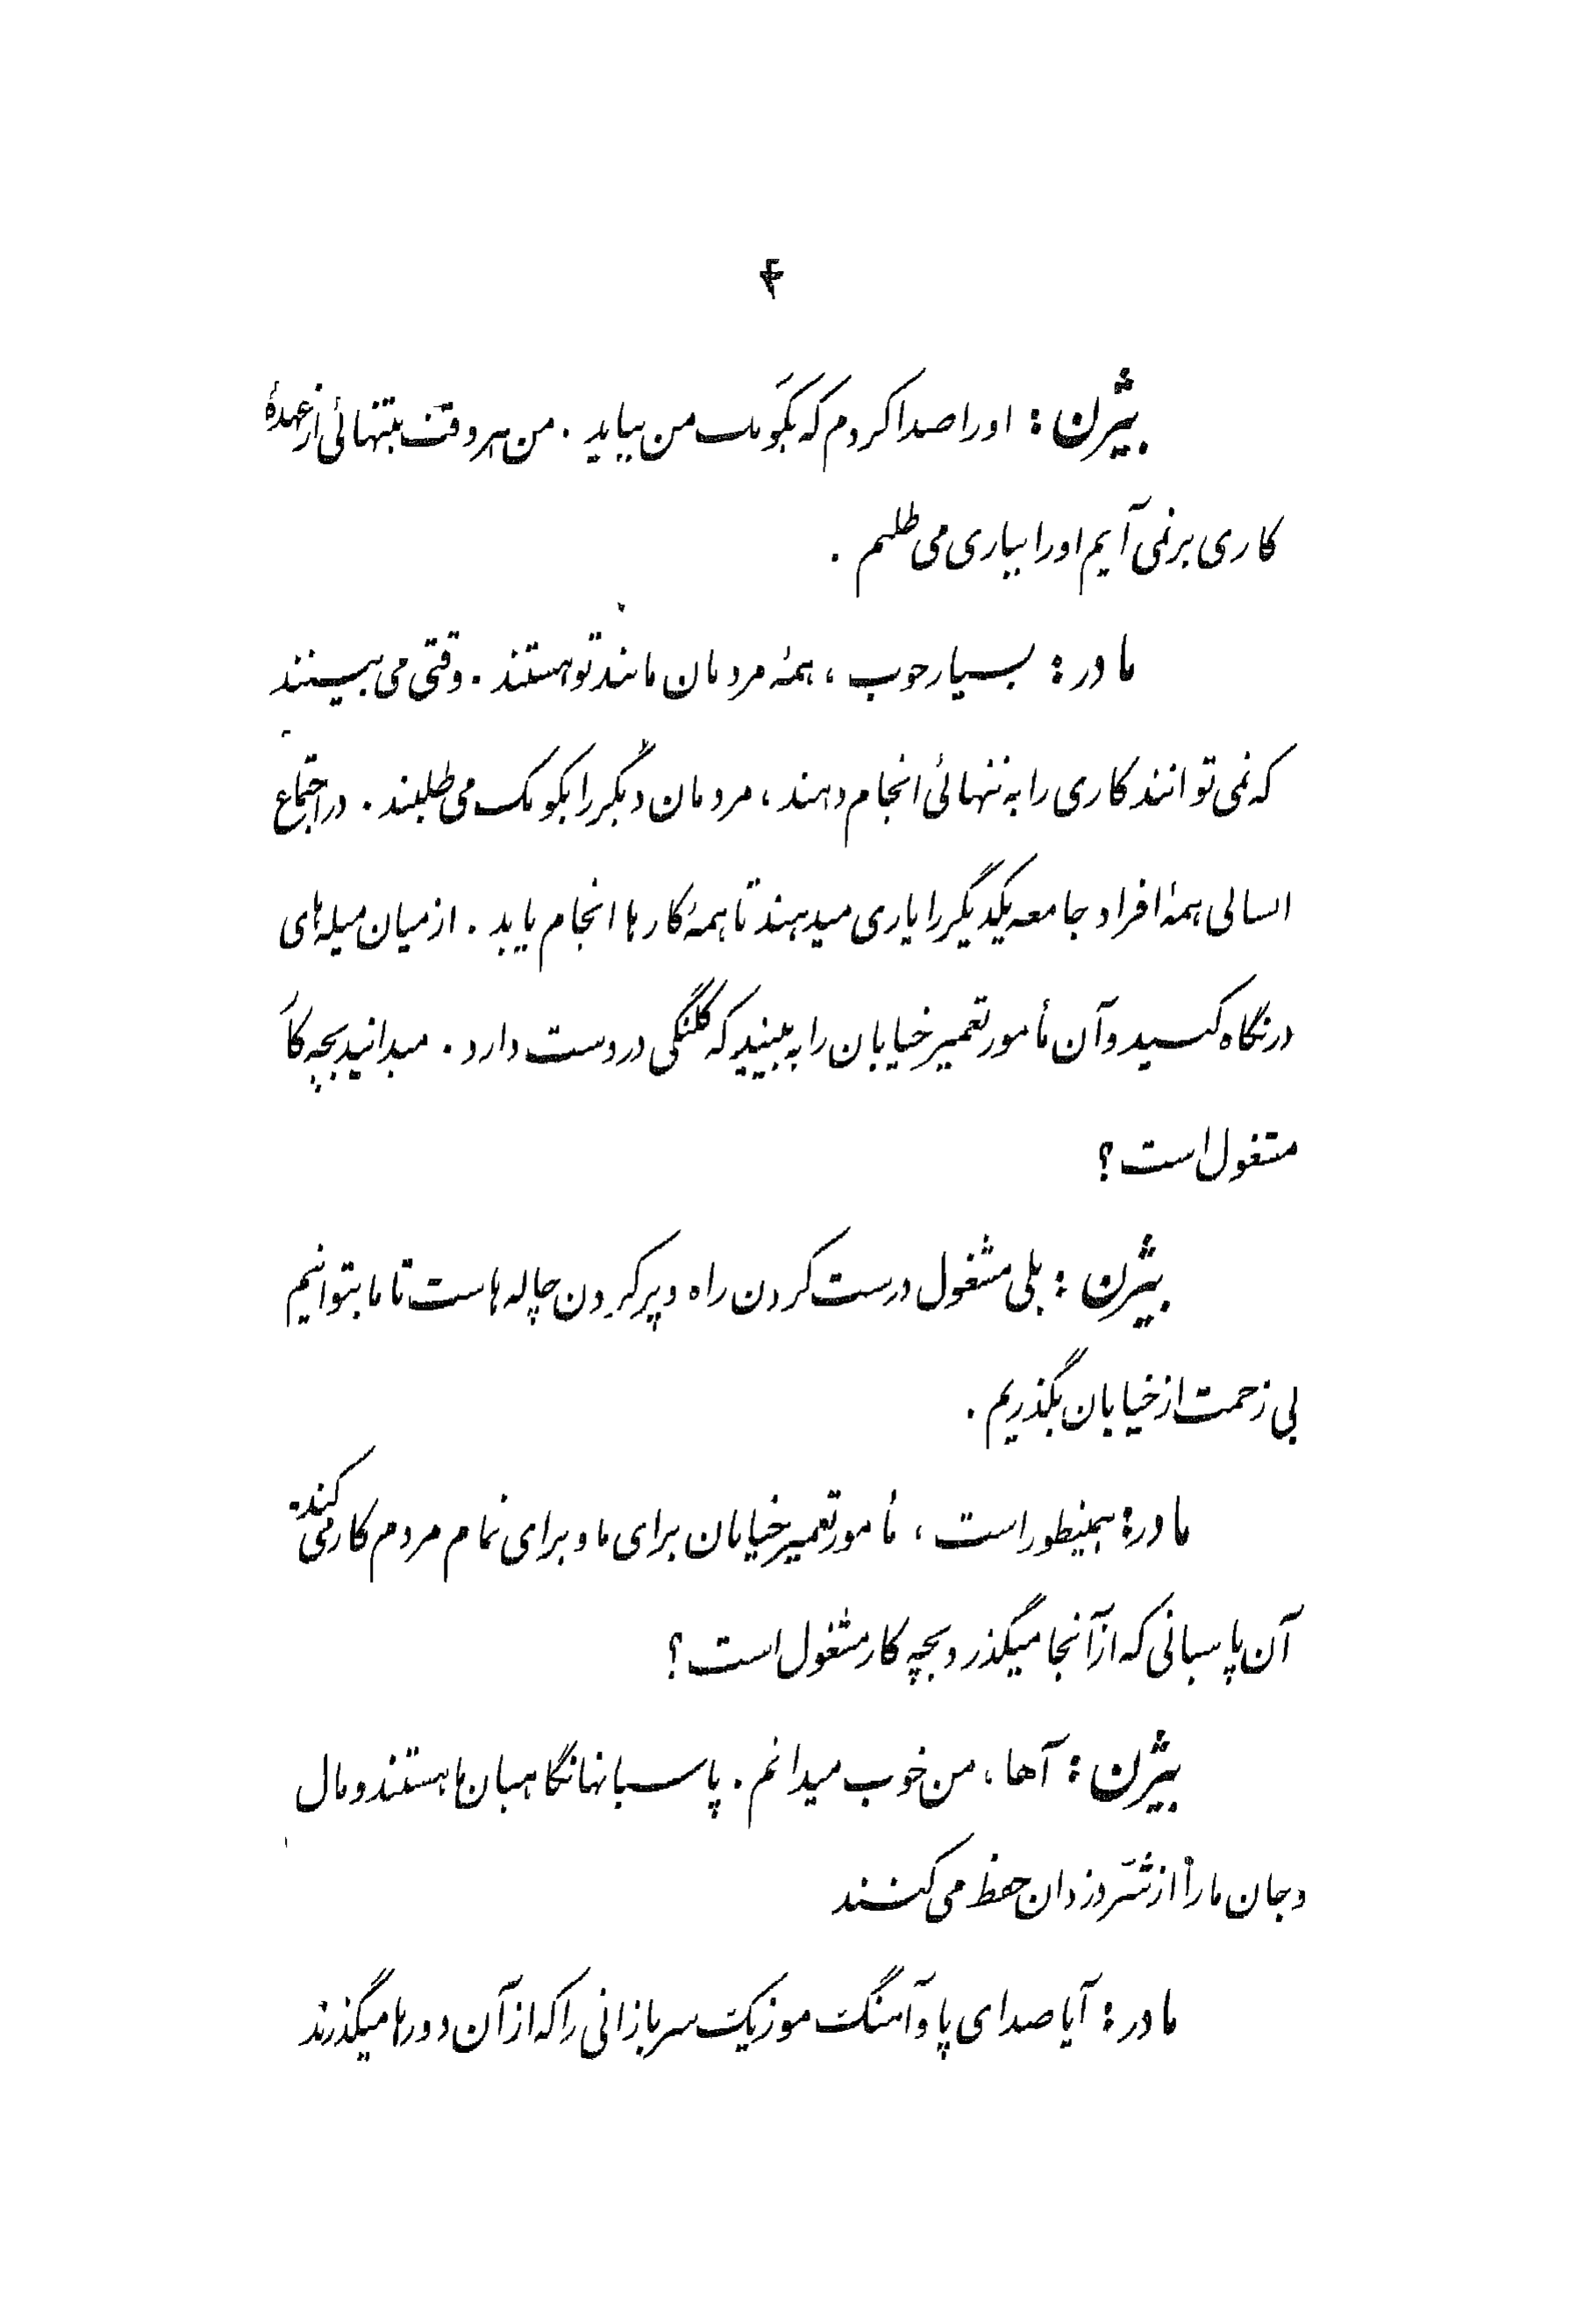 ۴
بیژن : او را صدا کردم که بکومک من بیاید . من هر وقت بتنهائی از عهدۀ
کاری برنمی آیم او را بیاری می طلبم .
مادر : بسیار خوب ، همۀ مردمان مانند تو هستند . وقتی می بینند
که نمی توانند کاری را به تنهائی انجام دهند ، مردمان دیگر را بکومک می طلبند . در اجتماع
انسانی همۀ افراد جامعه یکدیگر را یاری میدهند تا همۀ کارها انجام یابد . از میان میله های
در نگاه کنید و آن مأمور تعمیر خیابان را به بینید که کلنگی در دست دارد . میدانید بچه کار
مشغول است ؟
بیژن : بلی مشغول درست کردن راه و پر کردن چاله هاست تا ما بتوانیم
بی زحمت از خیابان بگذریم .
مادر : همینطور است ، مأمور تعمیر خیابان برای ما و برای تمام مردم کار می کند .
آن پاسبانی که از آنجا میگذرد بچه کار مشغول است ؟
بیژن : آها ، من خوب میدانم . پاسبانها نگاهبان ما هستند و مال
و جان ما را از شرّ دزدان حفظ می کنند
مادر : آیا صدای پا و آهنگ موزیک سربازانی را که از آن دورها میگذرند